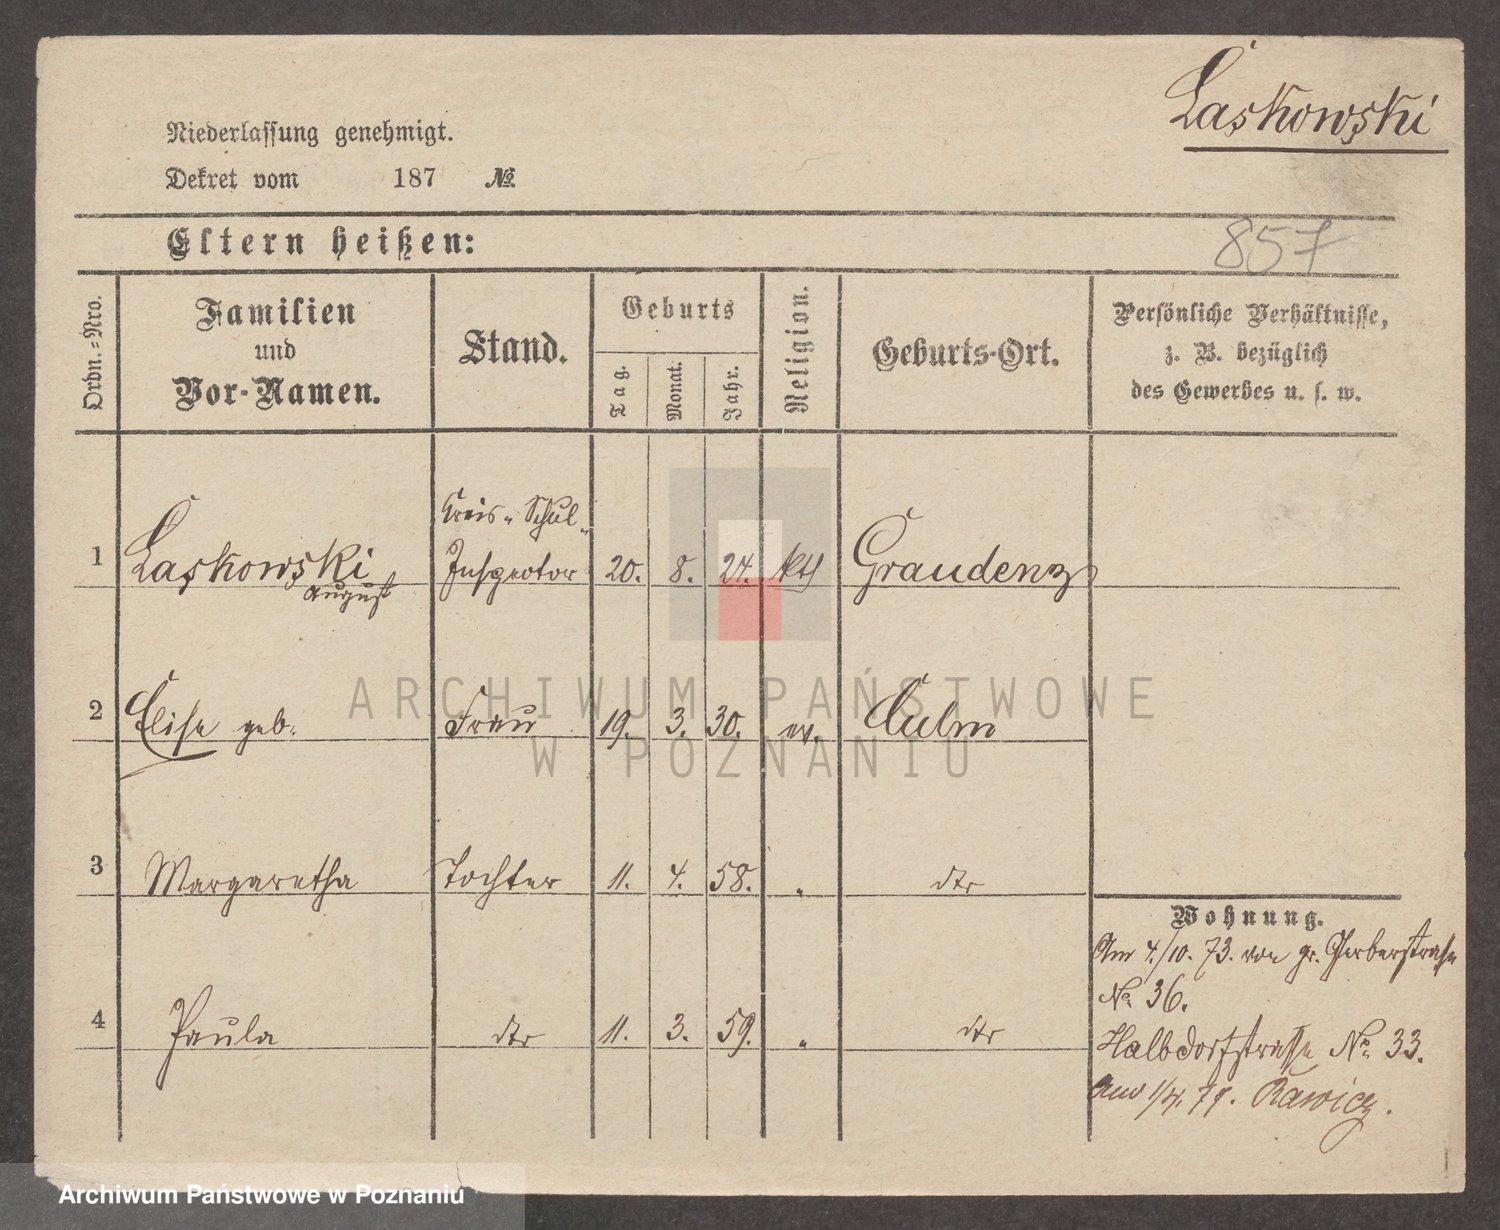 Laskowski
Niederlassung genehmigt.
Dekret vom 187 №
Eltern heißen:
857
Ordn.-Nro.
Familien
und
Vor-Namen.
Stand.
Geburts
Tag.
Monat.
Jahr.
Religion.
Geburts-Ort.
Persönliche Verhältnisse,
z. B. bezüglich
des Gewerbes u. s. w.
Kreis- Schul-
1 Laskowski Inspector 20. 8. 24. kth Graudenz
August
2 Elise geb. Frau 19. 3. 30. ev. Culm
ARCHIWUM PAŃSTWOWE
W POZNANIU
3 Margaretha Tochter 11. 4. 58. " dto
Wohnung.
Am 4./10. 73. von gr. Gerberstrasse
No. 36.
4 Paula dto 11. 3. 59. " dto
Halbdorfstrasse No. 33.
Rawicz.
Archiwum Państwowe w Poznaniu